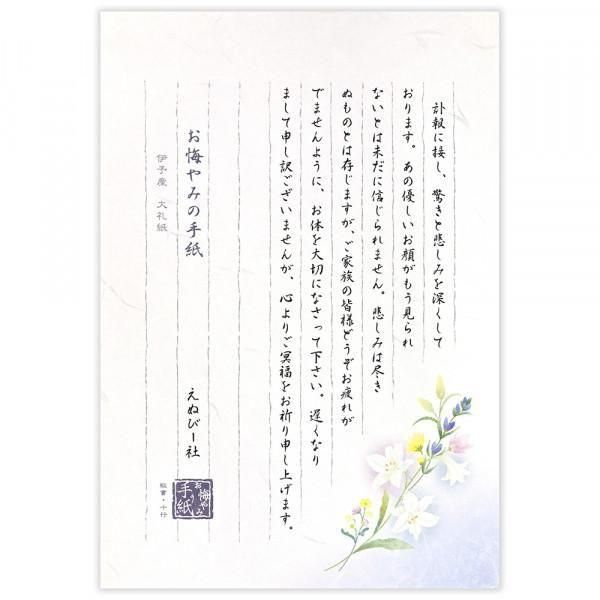 訃報に接し、驚きと悲しみを深くして
おります。あの優しいお顔がもう見られ
ないとは未だに信じられません。悲しみは尽き
ぬものとは存じますが、ご家族の皆様どうぞお疲れが
でませんように、お体を大切になさって下さい。遅くなり
まして申し訳ございませんが、心よりご冥福をお祈り申し上げます。
お悔やみの手紙
伊予産 大礼紙
えぬびー社
お悔やみ
手紙
縦書・十行